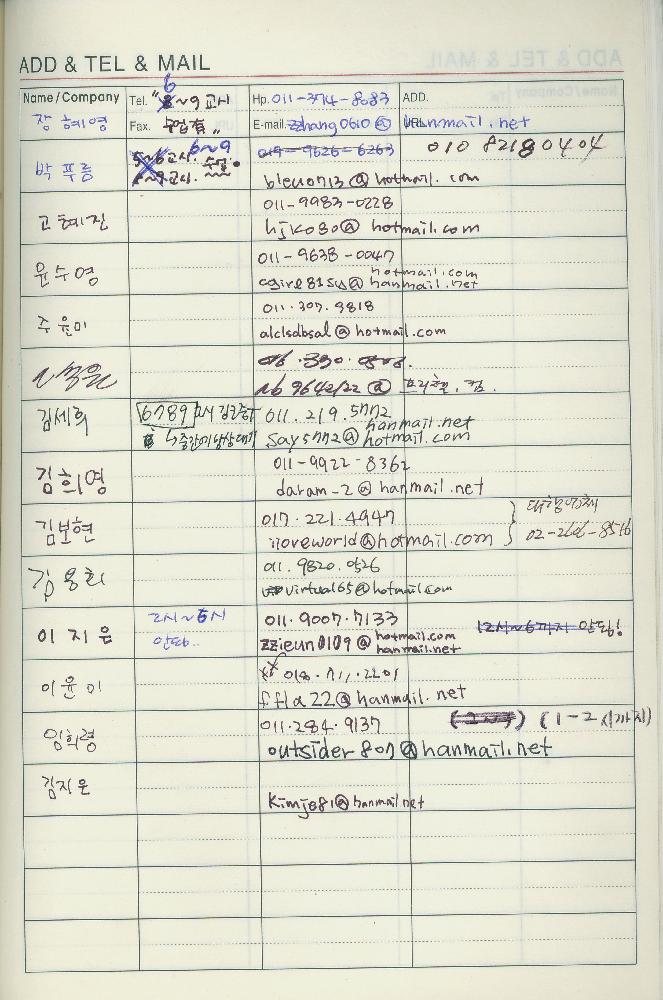 ADD & TEL & MAIL
Name/Company Tel. 6~9 교시 Hp. 011-374-8083 ADD.
장혜영 Fax. 수업有,, E-mail. zzhang0610@hanmail.net URL.
5~6교시. 6~9 수업. 019-9626-6263 010 8218 0404
박푸름 6~9교시. bleu0713@hotmail.com
011-9983-0228
고혜진 hjko80@hotmail.com
011-9638-0047
윤수영 hotmail.com
hanmail.net
011.307.9818
주윤미 alclsdbsal@hotmail.com
016.330.
@ 프리챌.컴.
김세희 6789 011.219.5772
say5772@hanmail.net
hotmail.com
011-9922-8362
김희영 daram-2@hanmail.net
017.221.4947
김보현 iloveworld@hotmail.com 02-266-8516
011.9820.0526
김용희 virtual65@hotmail.com
2시~5시 011.9007.7133 12시~6까지 안됨!
이지은 안돼.. zzieun0109@hotmail.com
hanmail.net
018.711.2201
이윤미 ffla22@hanmail.net
011.284.9137 (1-2시까지)
임희령 outsider807@hanmail.net
김지은
kimje81@hanmail.net